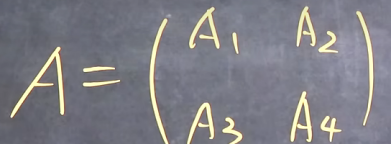 A = ( A₁ A₂
A₃ A₄ )